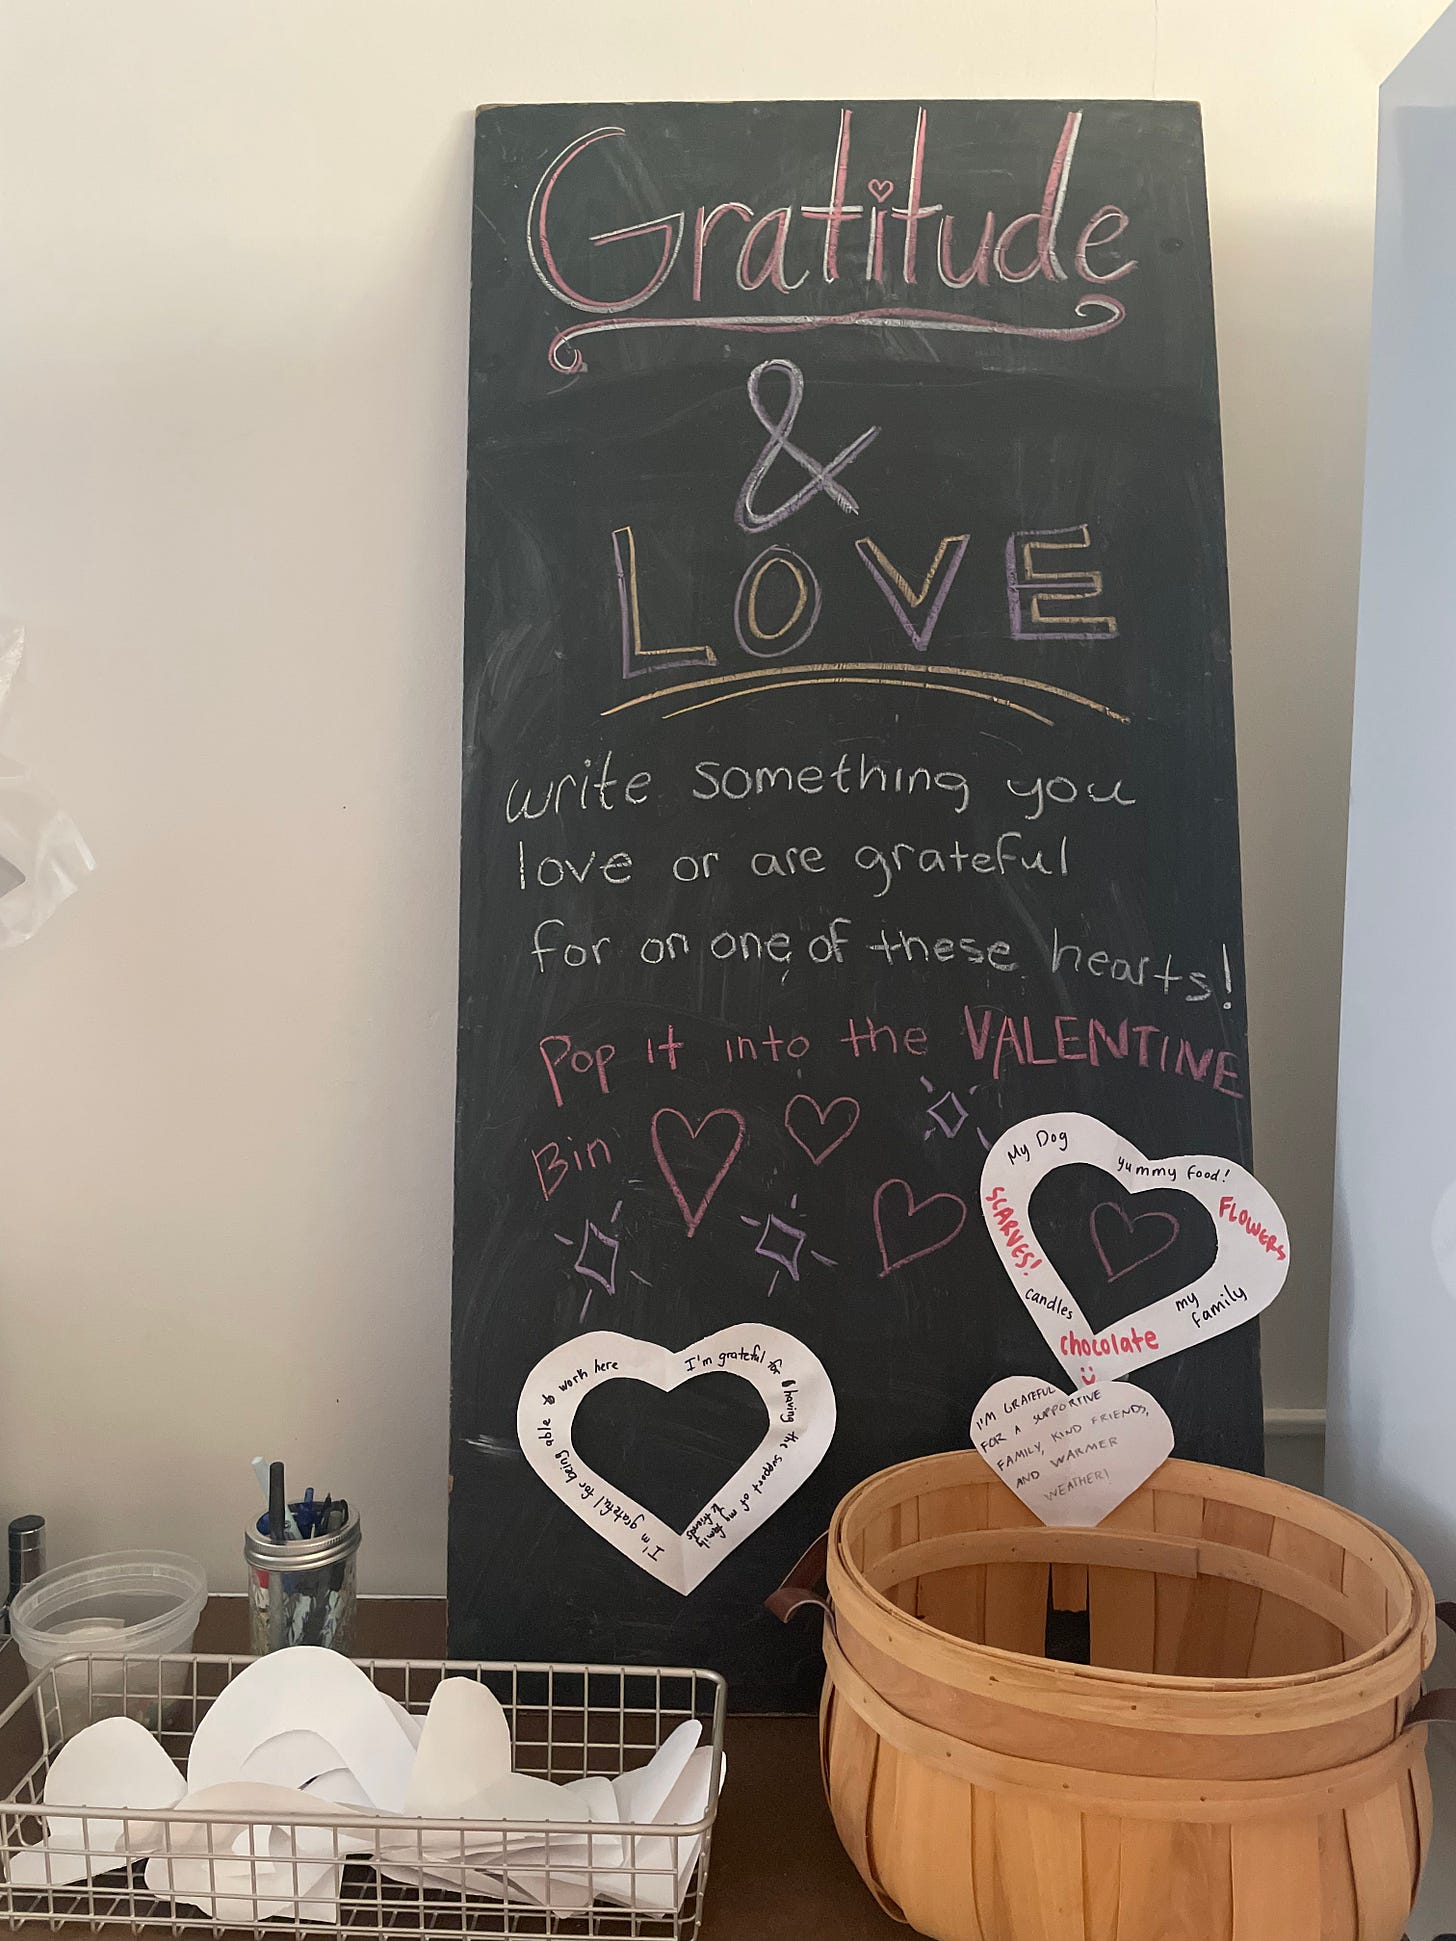 Gratitude
&
LOVE
write something you
love or are grateful
for on one of these hearts!
Pop it into the VALENTINE
Bin
My Dog
yummy food!
SCARVES!
FLOWERS
candles
my
family
chocolate
I'm grateful for being able to work here
I'm grateful for having the support of my family
& friends
I'M GRATEFUL
FOR A SUPPORTIVE
FAMILY, KIND FRIENDS,
AND WARMER
WEATHER!